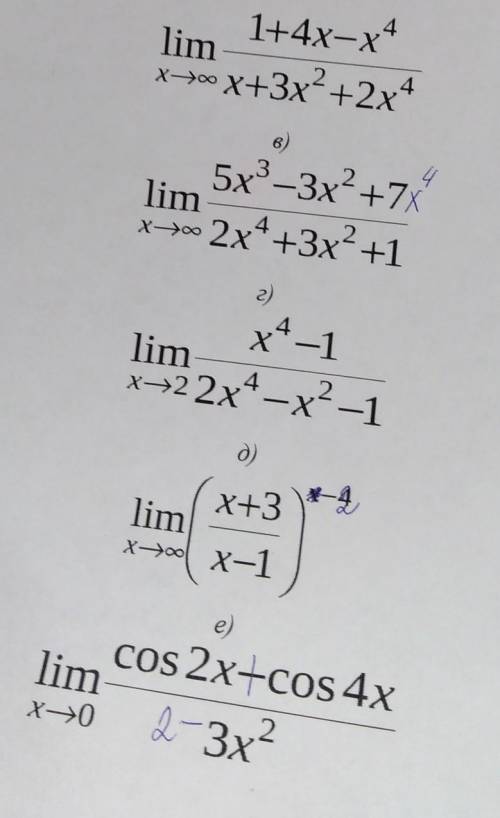 lim x→∞ (1+4x−x⁴)/(x+3x²+2x⁴)
в)
lim x→∞ (5x³−3x²+7x⁴)/(2x⁴+3x²+1)
г)
lim x→2 (x⁴−1)/(2x⁴−x²−1)
д)
lim x→∞ ((x+3)/(x−1))^(−2)
е)
lim x→0 (cos 2x+cos 4x)/(2−3x²)